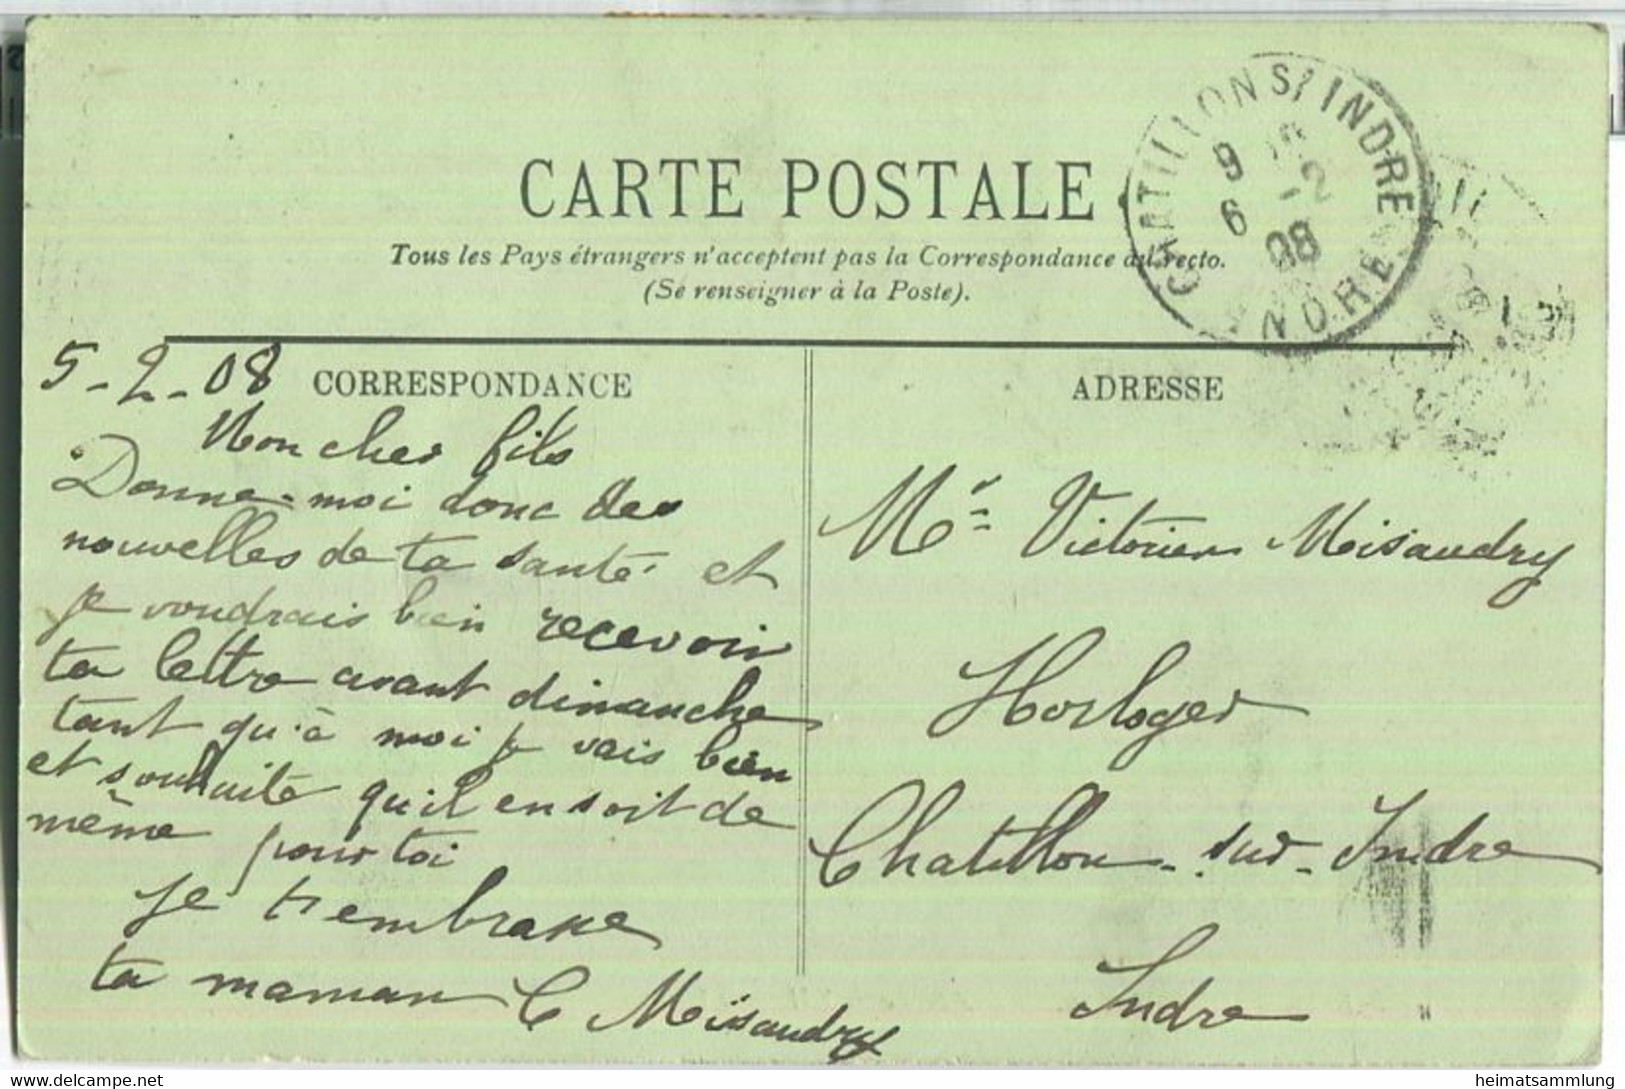 CARTE POSTALE
Tous les Pays étrangers n'acceptent pas la Correspondance au recto.
(Se renseigner à la Poste).
CHATILLON S/ INDRE
9
6 -2
08
INDRE
5-2-08
CORRESPONDANCE
Mon cher fils
Donne-moi donc des
nouvelles de ta santé et
je voudrais bien recevoir
ta lettre avant dimanche
tant qu'à moi je vais bien
et souhaite qu'il en soit de
même pour toi
Je t'embrasse
ta maman C Moïsaudry
ADRESSE
Mr Victorien Moisaudry
Horloger
Chatillon-sur-Indre
Indre
heimatsammlung